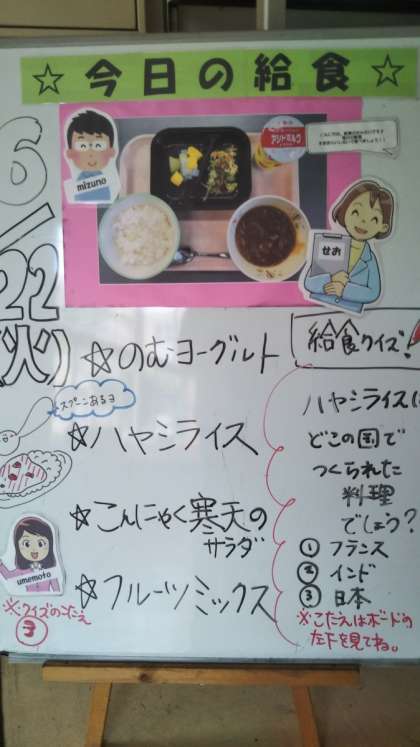 ☆今日の給食☆
mizuno
せお
6/22(火)
☆のむヨーグルト
スプーンあるヨ
☆ハヤシライス
☆こんにゃく寒天の
サラダ
☆フルーツミックス
umemoto
※クイズのこたえ
③
給食クイズ!
ハヤシライスは
どこの国で
つくられた
料理
でしょう?
① フランス
② インド
③ 日本
※こたえはボードの
左下を見てね。